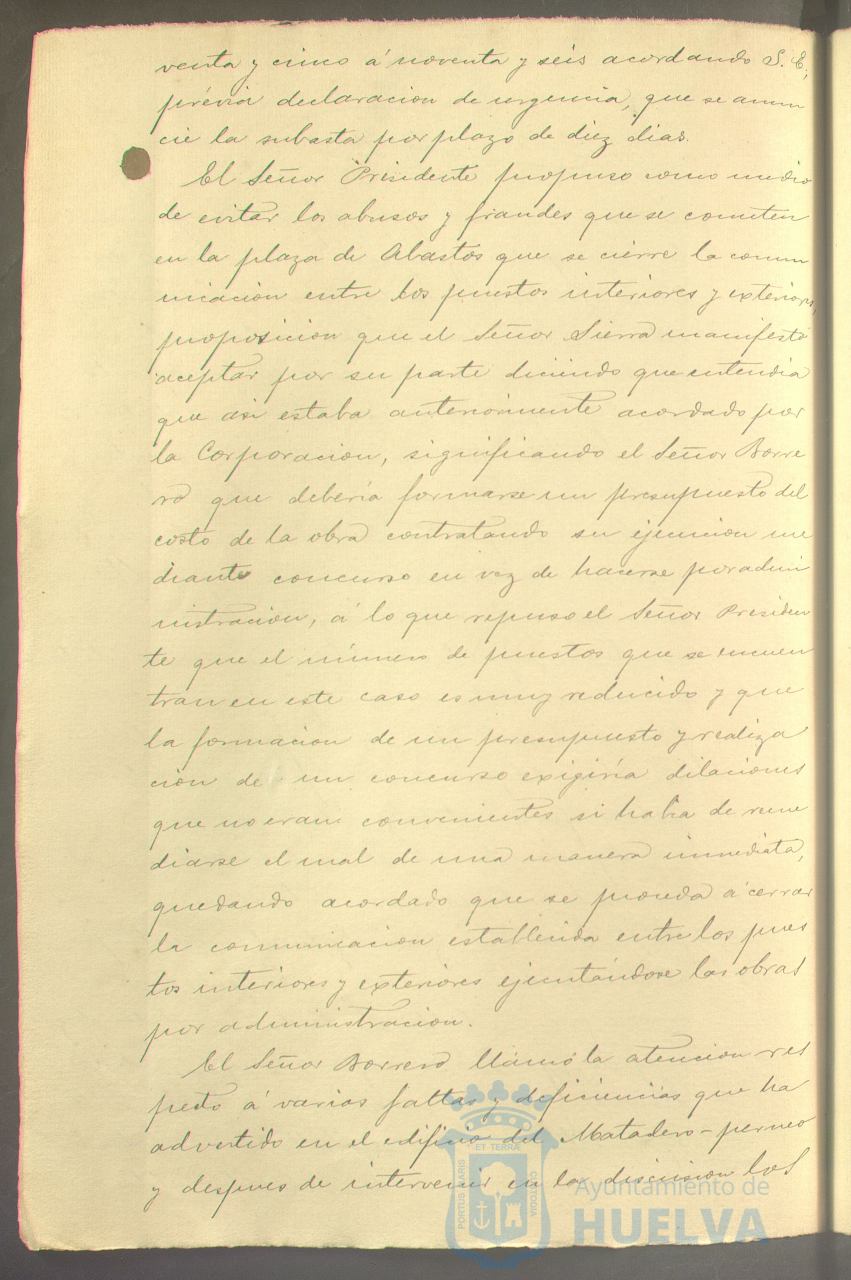 venta y cinco á noventa y seis acordando S. E.,
prévia declaracion de urgencia, que se anun
cie la subasta por plazo de diez dias.
El Señor Presidente propuso como medio
de evitar los abusos y fraudes que se cometen
en la plaza de Abastos que se cierre la comu
nicacion entre los puestos interiores y exteriores,
proposicion que el Señor Sierra manifestó
aceptar por su parte diciendo que entendia
que asi estaba anteriormente acordado por
la Corporacion, significando el Señor Borre
ro que deberia formarse un presupuesto del
costo de la obra contratando su ejecucion me
diante concurso en vez de hacerse por admi
nistracion, á lo que repuso el Señor Presiden
te que el número de puestos que se encuen
tran en este caso es muy reducido y que
la formacion de un presupuesto y realiza
cion de un concurso exigiria dilaciones
que no eran convenientes si habia de reme
diarse el mal de una manera inmediata,
quedando acordado que se proceda á cerrar
la comunicacion establecida entre los pues
tos interiores y exteriores ejecutándose las obras
por administracion.
El Señor Borrero llamó la atencion res
pecto á varias faltas y deficiencias que ha
advertido en el edificio del Matadero-perneo
y despues de intervenir en la discusion los
PORTUS MARIS
ET TERRÆ
CUSTODIA
Ayuntamiento de
HUELVA